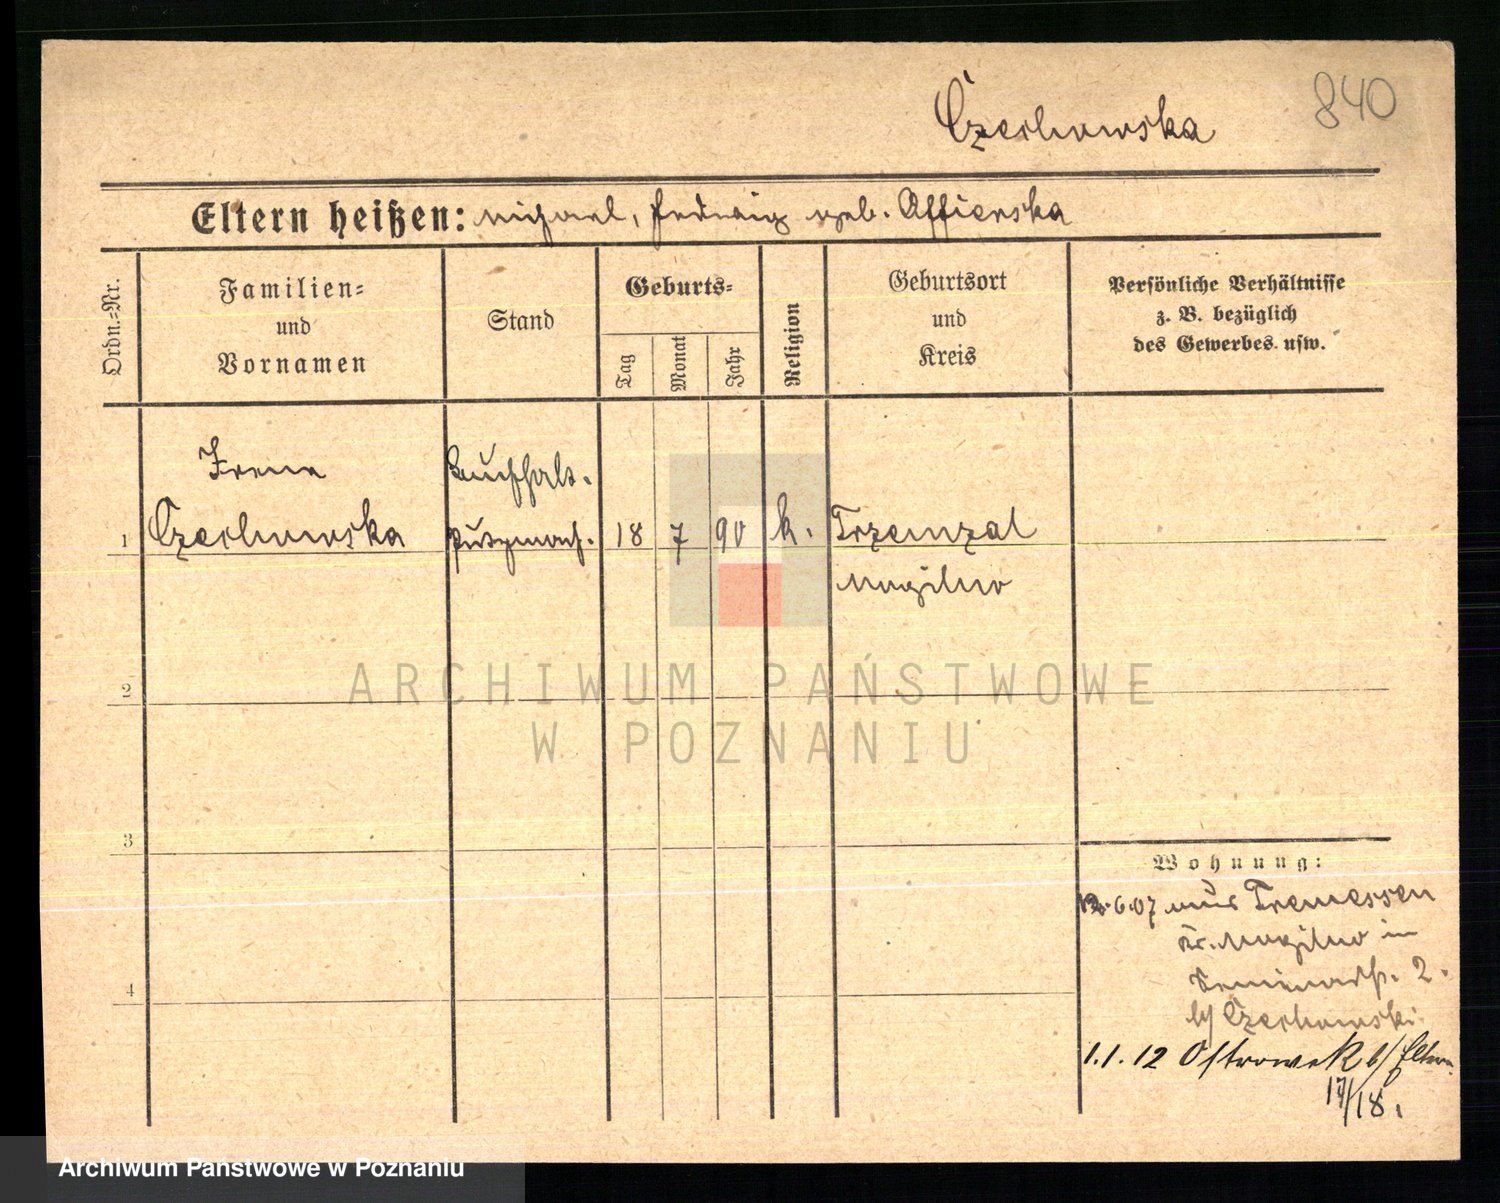 840
Czechowska
Eltern heißen: Michael, Hedwig geb. Offierska
Ordn.=Nr.
Familien=
und
Vornamen
Stand
Geburts=
Tag
Monat
Jahr
Religion
Geburtsort
und
Kreis
Persönliche Verhältnisse
z. B. bezüglich
des Gewerbes usw.
Irena
Buchhalt.
1 Czechowska Putzmach. 18 7 90 k. Trzemzal
Mogilno
2
ARCHIWUM PAŃSTWOWE
W POZNANIU
3
Wohnung:
6.07 aus Tremessen
Kr. Mogilno in
Seminarstr. 2.
b/ Czechowski
4
1.1.12 Ostrowek b/ Eltern.
17/18.
Archiwum Państwowe w Poznaniu